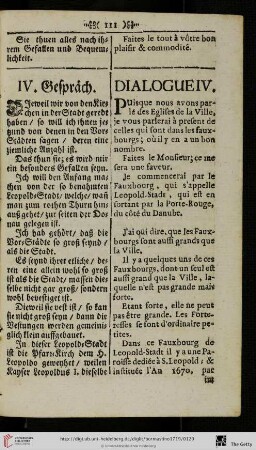 III
Sie thuen alles nach ih-
rem Gefallen und Bequem-
lichkeit.
IV. Gespräch.
Dieweil wir von den Kir-
chen in der Stadt geredt
haben / so will ich ihnen je-
tzund von denen in den Vor-
Städten sagen / deren eine
ziemliche Anzahl ist.
Das thun sie; es wird mir
ein besonders Gefallen seyn.
Ich will den Anfang ma-
chen von der so benahmten
Leopold-Stadt/ welche/ wañ
man zum rothen Thurn hin-
auß gehet/ zur seiten der Do-
nau gelegen ist.
Ich hab gehört/ daß die
Vor-Städte so groß seynd/
als die Stadt.
Es seynd ihrer etliche / de-
ren eine allein wohl so groß
ist als die Stadt/ massen die-
selbe nicht gar groß/ sondern
wohl bevestiget ist.
Dieweil sie vest ist / so kan
sie nicht groß seyn / dann die
Vestungen werden gemeinig-
lich klein auffgebauet.
In dieser Leopold-Stadt
ist die Pfarr-Kirch dem H.
Leopoldo geweyhet / weilen
Kayser Leopoldus I. dieselbe
Faites le tout à vôtre bon
plaisir & commodité.
DIALOGUE IV.
Puisque nous avons par-
lé des Eglises de la Ville,
je vous parlerai à present de
celles qui sont dans les faux-
bourgs; où il y en a un bon
nombre.
Faites le Monsieur; ce me
sera une faveur.
Je commencerai par le
Fauxbourg, qui s'appelle
Leopold-Stadt, qui est en
sortant par la Porte-Rouge,
du côté du Danube.
J'ai qui dire, que les Faux-
bourgs sont aussi grands que
la Ville.
Il y a quelques uns de ces
Fauxbourgs, dont un seul est
aussi grand que la Ville, la-
quelle n'est pas grande mais
forte.
Etant forte, elle ne peut
pas être grande. Les Forte-
resses se font d'ordinaire pe-
tites.
Dans ce Fauxbourg de
Leopold-Stadt il y a une Pa-
roisse dediée à S. Leopold: &
instituée l'An 1670, par
http://digi.ub.uni-heidelberg.de/diglit/bormastino1719/0123
© Universitätsbibliothek Heidelberg
The Getty